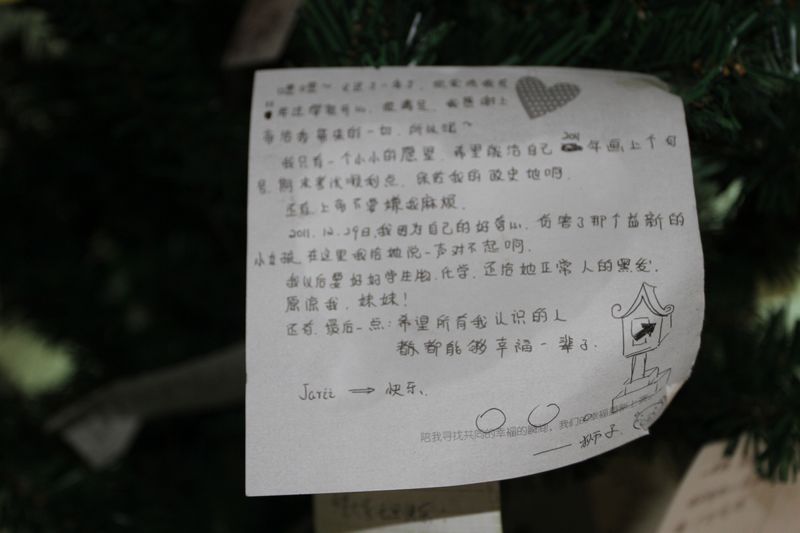 嘿嘿～又过了一年了，
希还算开心，很满足，我感谢上
帝给我带来的一切，所以捏～
我只有一个小小的愿望，希望能给自己2011年画上个句
号，期末考试顺利点，保佑我的政史地啊。
还有上帝不要嫌我麻烦。
2011.12.29日，我因为自己的好奇心，伤害了那个益新的
小女孩，在这里我给她说一声对不起啊。
我以后要好好学生物、化学，还给她正常人的黑发。
原谅我，妹妹！
还有，最后一点：希望所有我认识的人
都能够幸福一辈子。
快乐.
陪我寻找共同的幸福的瞬间，我们
——狮子.